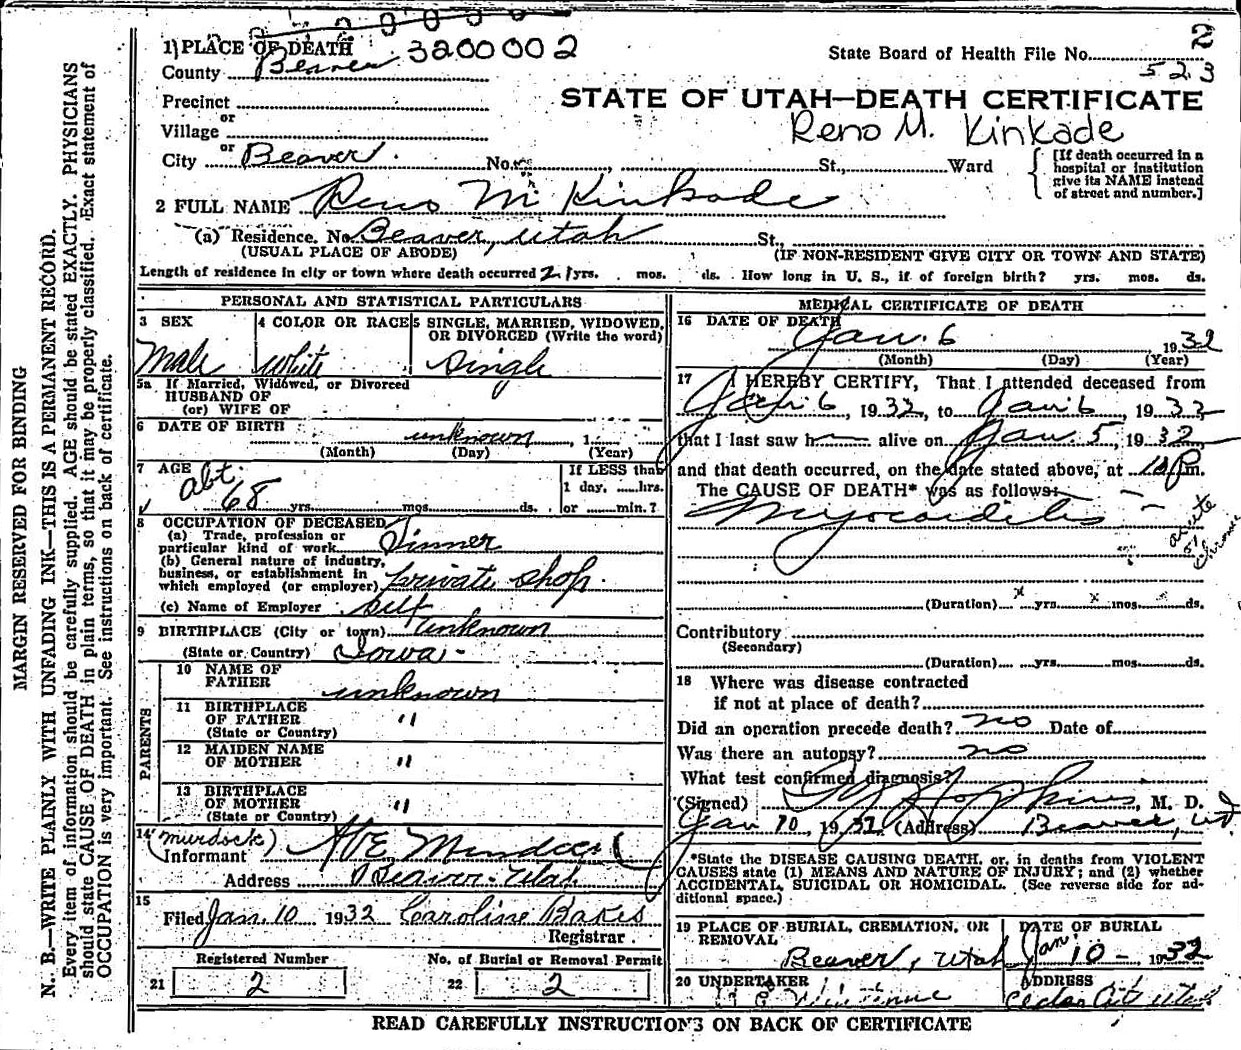 1) PLACE OF DEATH 3200002
State Board of Health File No. 2
County Beaver 523
Precinct
or
Village
STATE OF UTAH—DEATH CERTIFICATE
Reno M. Kinkade
or
City Beaver. No. St., Ward
[If death occurred in a hospital or institution give its NAME instead of street and number.]
2 FULL NAME Reno McKinkade
(a) Residence. No. Beaver, Utah St.,
(USUAL PLACE OF ABODE) (IF NON-RESIDENT GIVE CITY OR TOWN AND STATE)
Length of residence in city or town where death occurred 21 yrs. mos. ds. How long in U. S., if of foreign birth? yrs. mos. ds.
PERSONAL AND STATISTICAL PARTICULARS
3 SEX 4 COLOR OR RACE 5 SINGLE, MARRIED, WIDOWED, OR DIVORCED (Write the word)
Male White Single
5a If Married, Widowed, or Divorced
HUSBAND OF
(or) WIFE OF
6 DATE OF BIRTH
unknown, 1
(Month) (Day) (Year)
7 AGE If LESS than
abt. 1 day, hrs.
68 yrs. mos. ds. or min.?
8 OCCUPATION OF DECEASED
(a) Trade, profession or
particular kind of work Tinner
(b) General nature of industry,
business, or establishment in
which employed (or employer) private shop.
(c) Name of Employer self
9 BIRTHPLACE (City or town) unknown
(State or Country) Iowa
PARENTS
10 NAME OF
FATHER unknown
11 BIRTHPLACE
OF FATHER "
(State or Country)
12 MAIDEN NAME
OF MOTHER "
13 BIRTHPLACE
OF MOTHER "
(State or Country)
14 (Murdock)
Informant
Address Beaver-Utah
15
Filed Jan. 10 1932 Caroline Bakes
Registrar.
Registered Number No. of Burial or Removal Permit
21 2 22 2
MEDICAL CERTIFICATE OF DEATH
16 DATE OF DEATH
Jan. 6 1932
(Month) (Day) (Year)
17 I HEREBY CERTIFY, That I attended deceased from
Jan 6, 1932, to Jan 6, 1932
that I last saw h alive on Jan. 5, 1932
and that death occurred, on the date stated above, at m.
The CAUSE OF DEATH* was as follows:
Myocarditis
acute or chronic
(Duration) x yrs. x mos. ds.
Contributory
(Secondary)
(Duration) yrs. mos. ds.
18 Where was disease contracted
if not at place of death?
Did an operation precede death? no Date of
Was there an autopsy? no
What test confirmed diagnosis?
(Signed) Hopkins, M. D.
Jan 10, 1932 (Address) Beaver, Ut
*State the DISEASE CAUSING DEATH, or, in deaths from VIOLENT
CAUSES state (1) MEANS AND NATURE OF INJURY; and (2) whether
ACCIDENTAL, SUICIDAL OR HOMICIDAL. (See reverse side for ad-
ditional space.)
19 PLACE OF BURIAL, CREMATION, OR REMOVAL DATE OF BURIAL
Beaver, Utah Jan 10 - 1932
20 UNDERTAKER ADDRESS
Cedar City Utah
READ CAREFULLY INSTRUCTIONS ON BACK OF CERTIFICATE
MARGIN RESERVED FOR BINDING
N. B.—WRITE PLAINLY WITH UNFADING INK—THIS IS A PERMANENT RECORD.
Every item of information should be carefully supplied. AGE should be stated EXACTLY. PHYSICIANS
should state CAUSE OF DEATH in plain terms, so that it may be properly classified. Exact statement of
OCCUPATION is very important. See instructions on back of certificate.